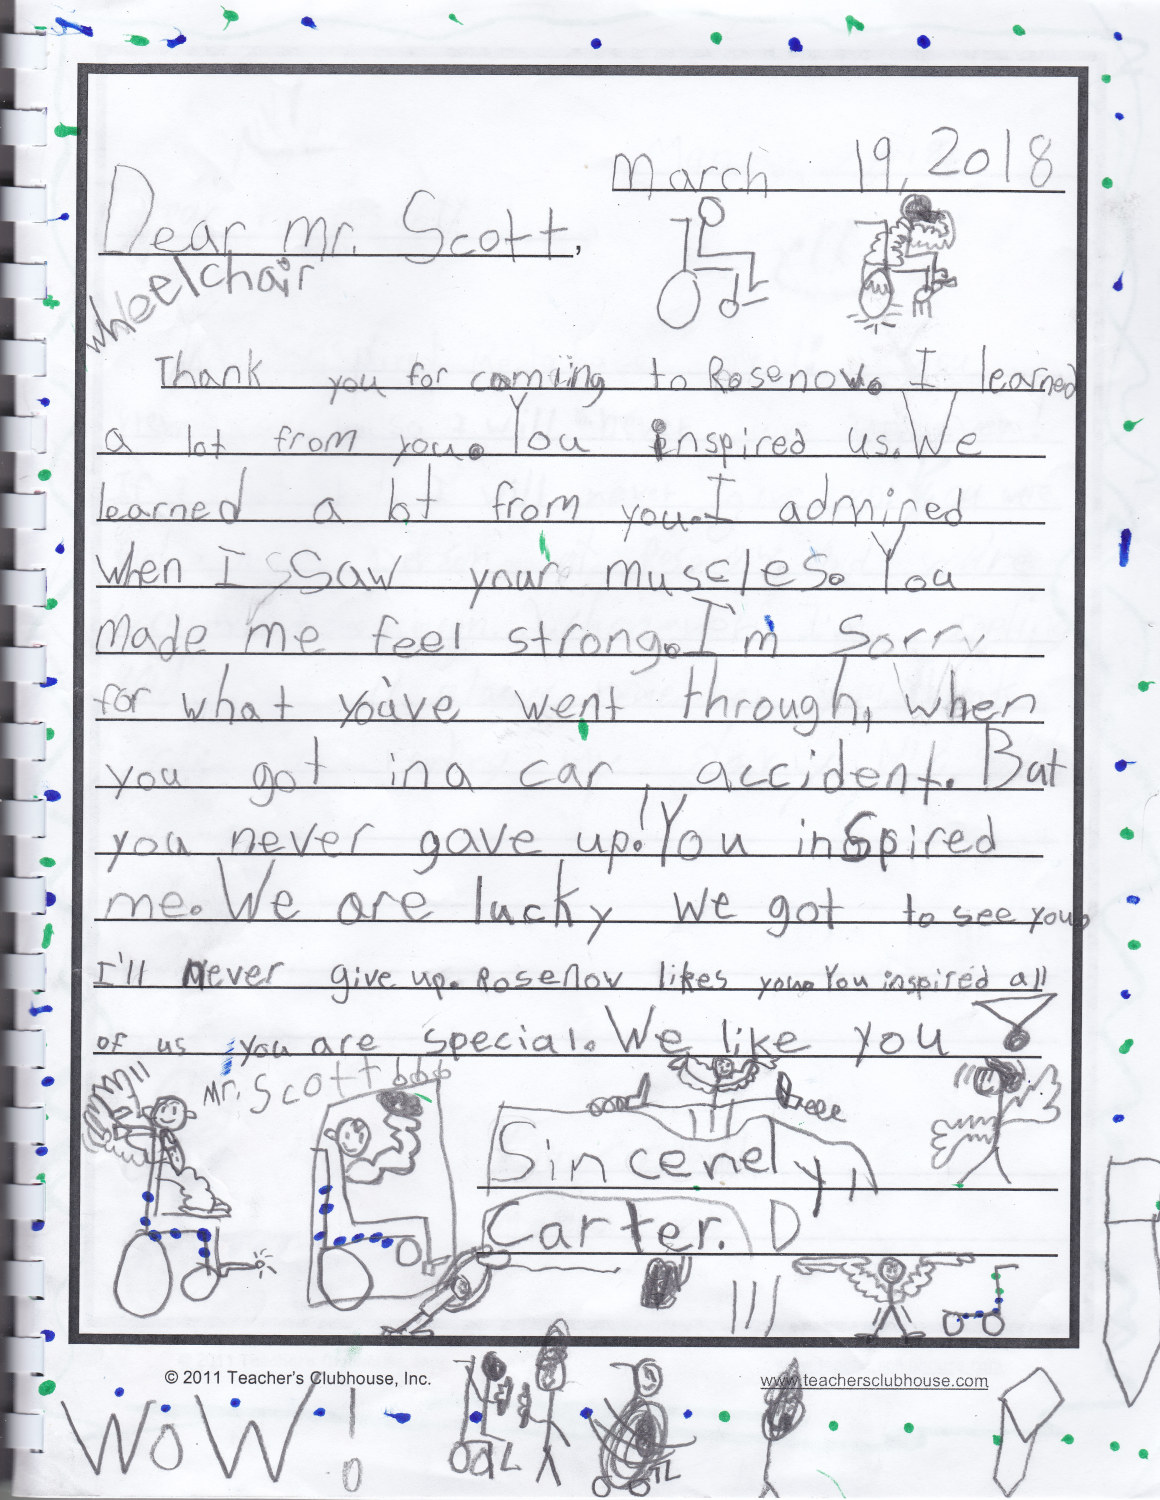 March 19, 2018
Dear Mr. Scott,
wheelchair
Thank you for coming to Rosenow. I learned
a lot from you. You inspired us. We
learned a lot from you. I admired
when I ssaw your muscles. You
made me feel strong. I'm Sorry
for what you've went through, when
you got in a car accident. But
you never gave up! You inspired
me. We are lucky we got to see you.
I'll Never give up. Rosenow likes you. You inspired all
of us you are special. We like you !
Mr. Scott
Sincerely,
Carter. D
© 2011 Teacher's Clubhouse, Inc.
www.teachersclubhouse.com
WoW!